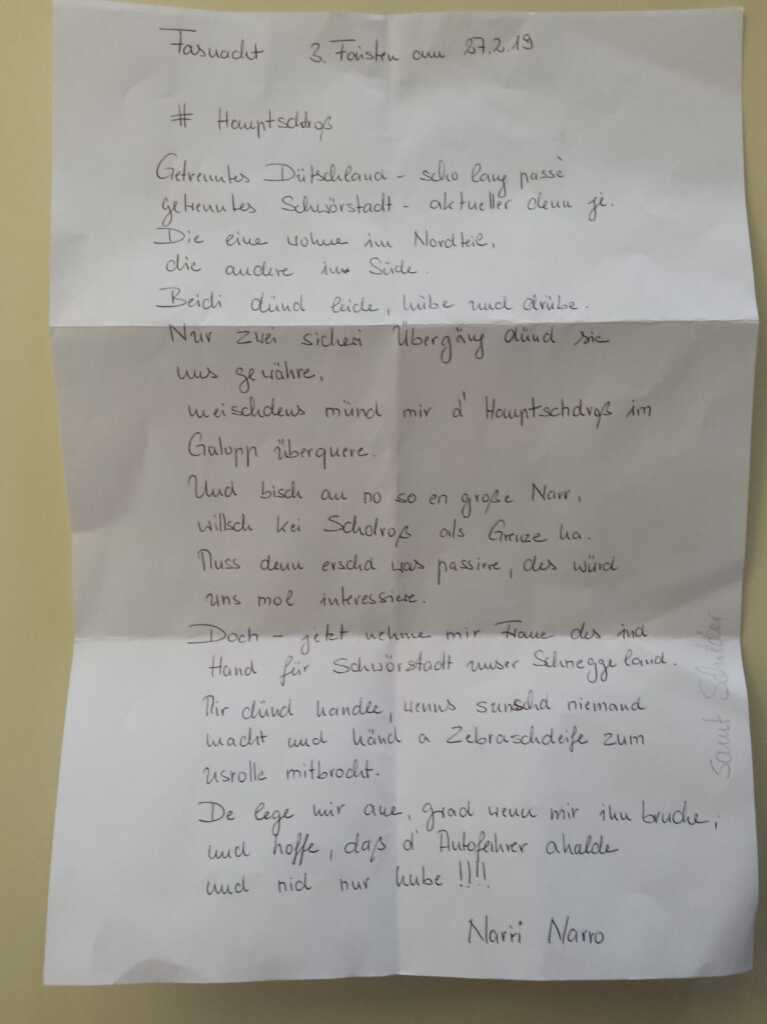 Fasnacht 3. Faisten am 27.2.19
# Hauptschdroß
Getrenntes Dütschland - scho lang passè
getrenntes Schwörstadt - aktueller denn je.
Die eine wohne im Nordteil,
die andere im Süde.
Beidi dünd leide, hübe und drübe.
Nur zwei sicheri Übergäng dünd sie
uns gewähre,
meischdens münd mir d' Hauptschdroß im
Galopp überquere.
Und bisch au no so en große Narr,
willsch kei Schdroß als Grenze ha.
Muss denn erschd was passiere, des würd
uns mol interessiere.
Doch - jetzt nehme mir Fraue des ind
Hand für Schwörstadt unser Schneggeland.
Mir dünd handle, wenns sunschd niemand
macht und händ a Zebraschdreife zum
usrolle mitbrocht.
De lege mir ane, grad wenn mir ihn bruche,
und hoffe, daß d' Autofahrer ahalde
und nid nur hube !!!!
Narri Narro
samt Schilder